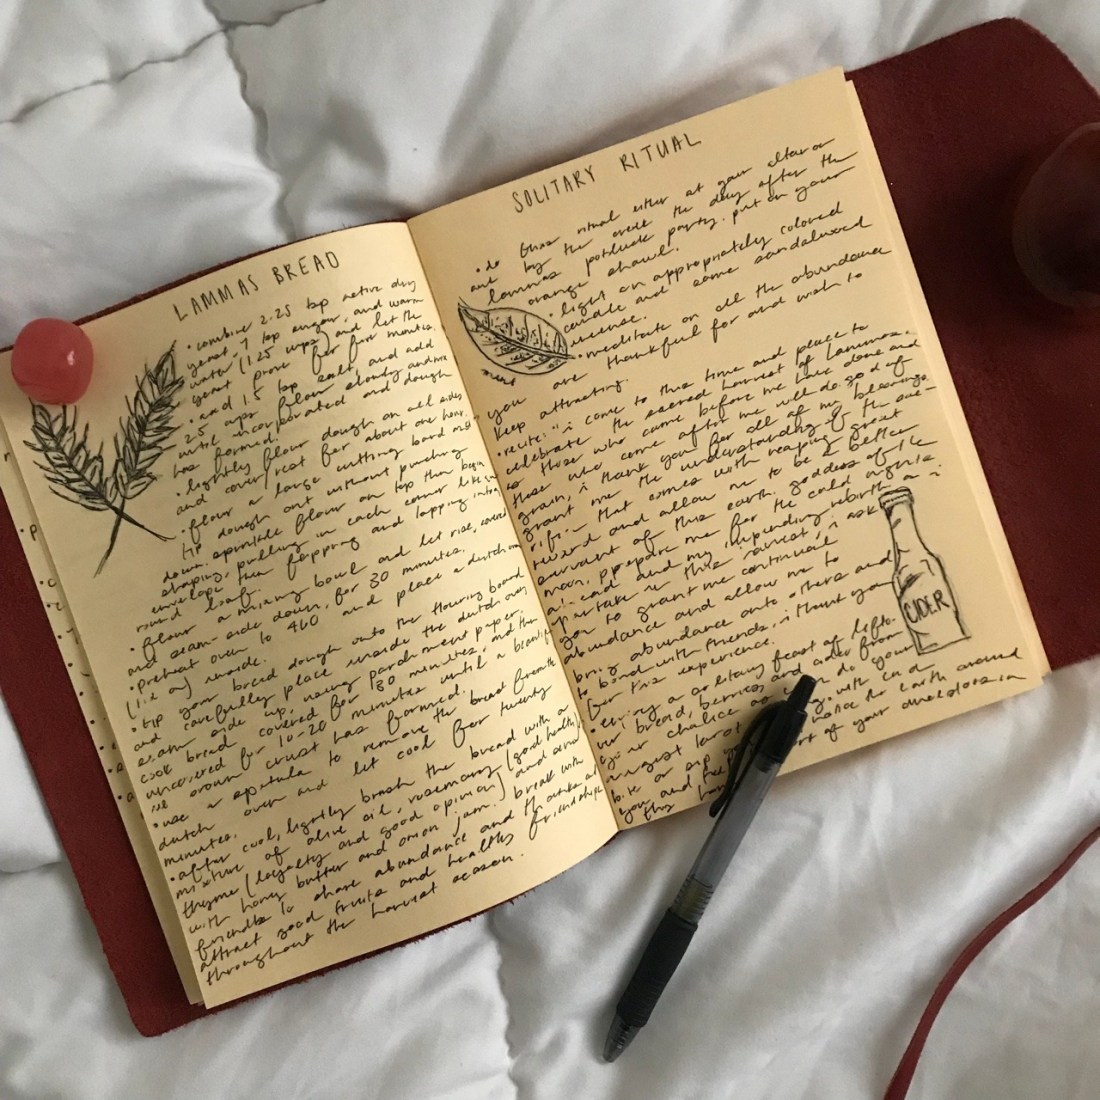 LAMMAS BREAD
• combine 2.25 tsp active dry
yeast, 1 tsp sugar, and warm
water (1.25 cups) and let the
yeast prove for five minutes.
• add 1.5 tsp salt, and add
2.5 cups flour slowly
until incorporated and dough
has formed.
• lightly flour dough on all sides
and cover/rest for about one hour.
• flour a large cutting board and
tip dough out without punching
down. sprinkle flour on top then begin
shaping, pulling in each corner like an
envelope then flipping and lapping into a
round loaf.
• flour a mixing bowl and let rise, covered
and seam-side down, for 30 minutes.
• preheat oven to 460 and place a dutch oven
(i.e. a) inside.
• tip your bread dough onto the flouring board
and carefully place inside the dutch oven,
seam side up, using parchment paper.
cook bread covered for 30 minutes, and then
uncovered for 10-20 minutes until a beautiful
brown crust has formed.
• use a spatula to remove the bread from the
dutch oven and let cool for twenty
minutes.
• after cool, lightly brush the bread with a
mixture of olive oil, rosemary (good health)
thyme (loyalty and good opinion) and serve
with honey butter and onion jam. break with
friends to share abundance and
attract good fruits and healthy friendships
throughout the harvest season.
SOLITARY RITUAL
• do this ritual either at your altar or
by the creek the day after the
lammas potluck party. put on your
orange shawl.
• light an appropriately colored
candle and some sandalwood
incense.
• meditate on all the abundance
you are thankful for and wish to
keep attracting.
• recite: "i come to this time and place to
celebrate the sacred harvest of lammas.
as those who came before me have done and
those who come after me will do. god of
grain, i thank you for all of my blessings.
grant me the understanding of the
that comes with reaping great
reward and allow me to be a better
servant of this earth. goddess of the
moon, prepare me for the cold nights
ahead and my impending rebirth. as i
partake in this sunset, i ask
you to grant me continual
abundance and allow me to
bring abundance unto others and
to bond with friends. i thank you
for this experience."
• enjoy a solitary feast of lefto-
ver bread, berries and cider from
your chalice as you do your
august tarot with each
bite or sip
you and
this
CIDER